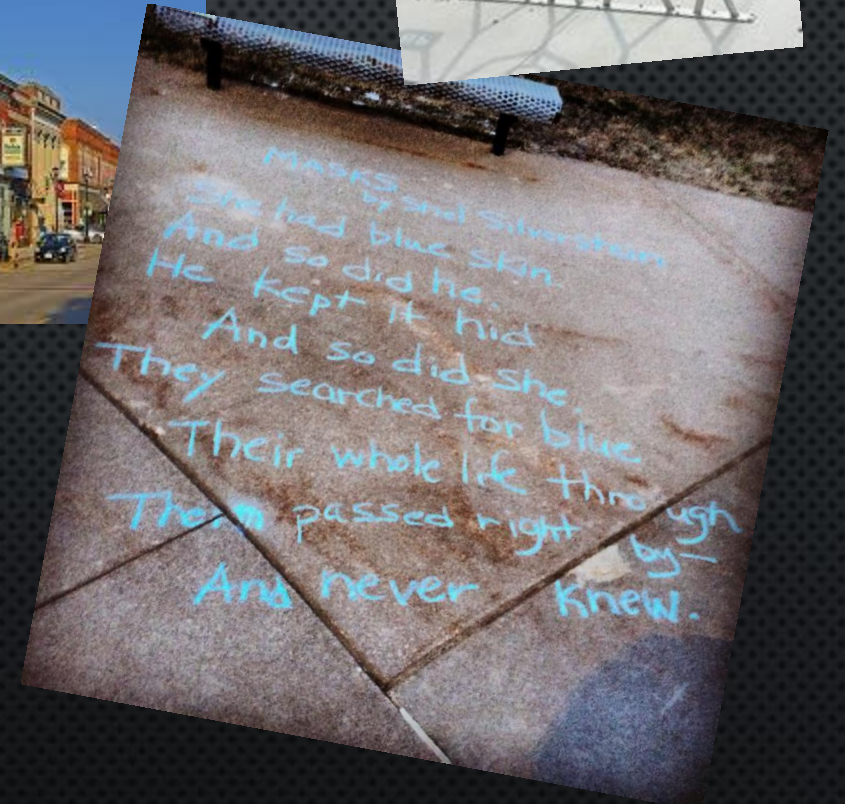 MASKS
by Shel Silverstein
She had blue skin.
And so did he.
He kept it hid
And so did she.
They searched for blue
Their whole life through
Then passed right by—
And never knew.